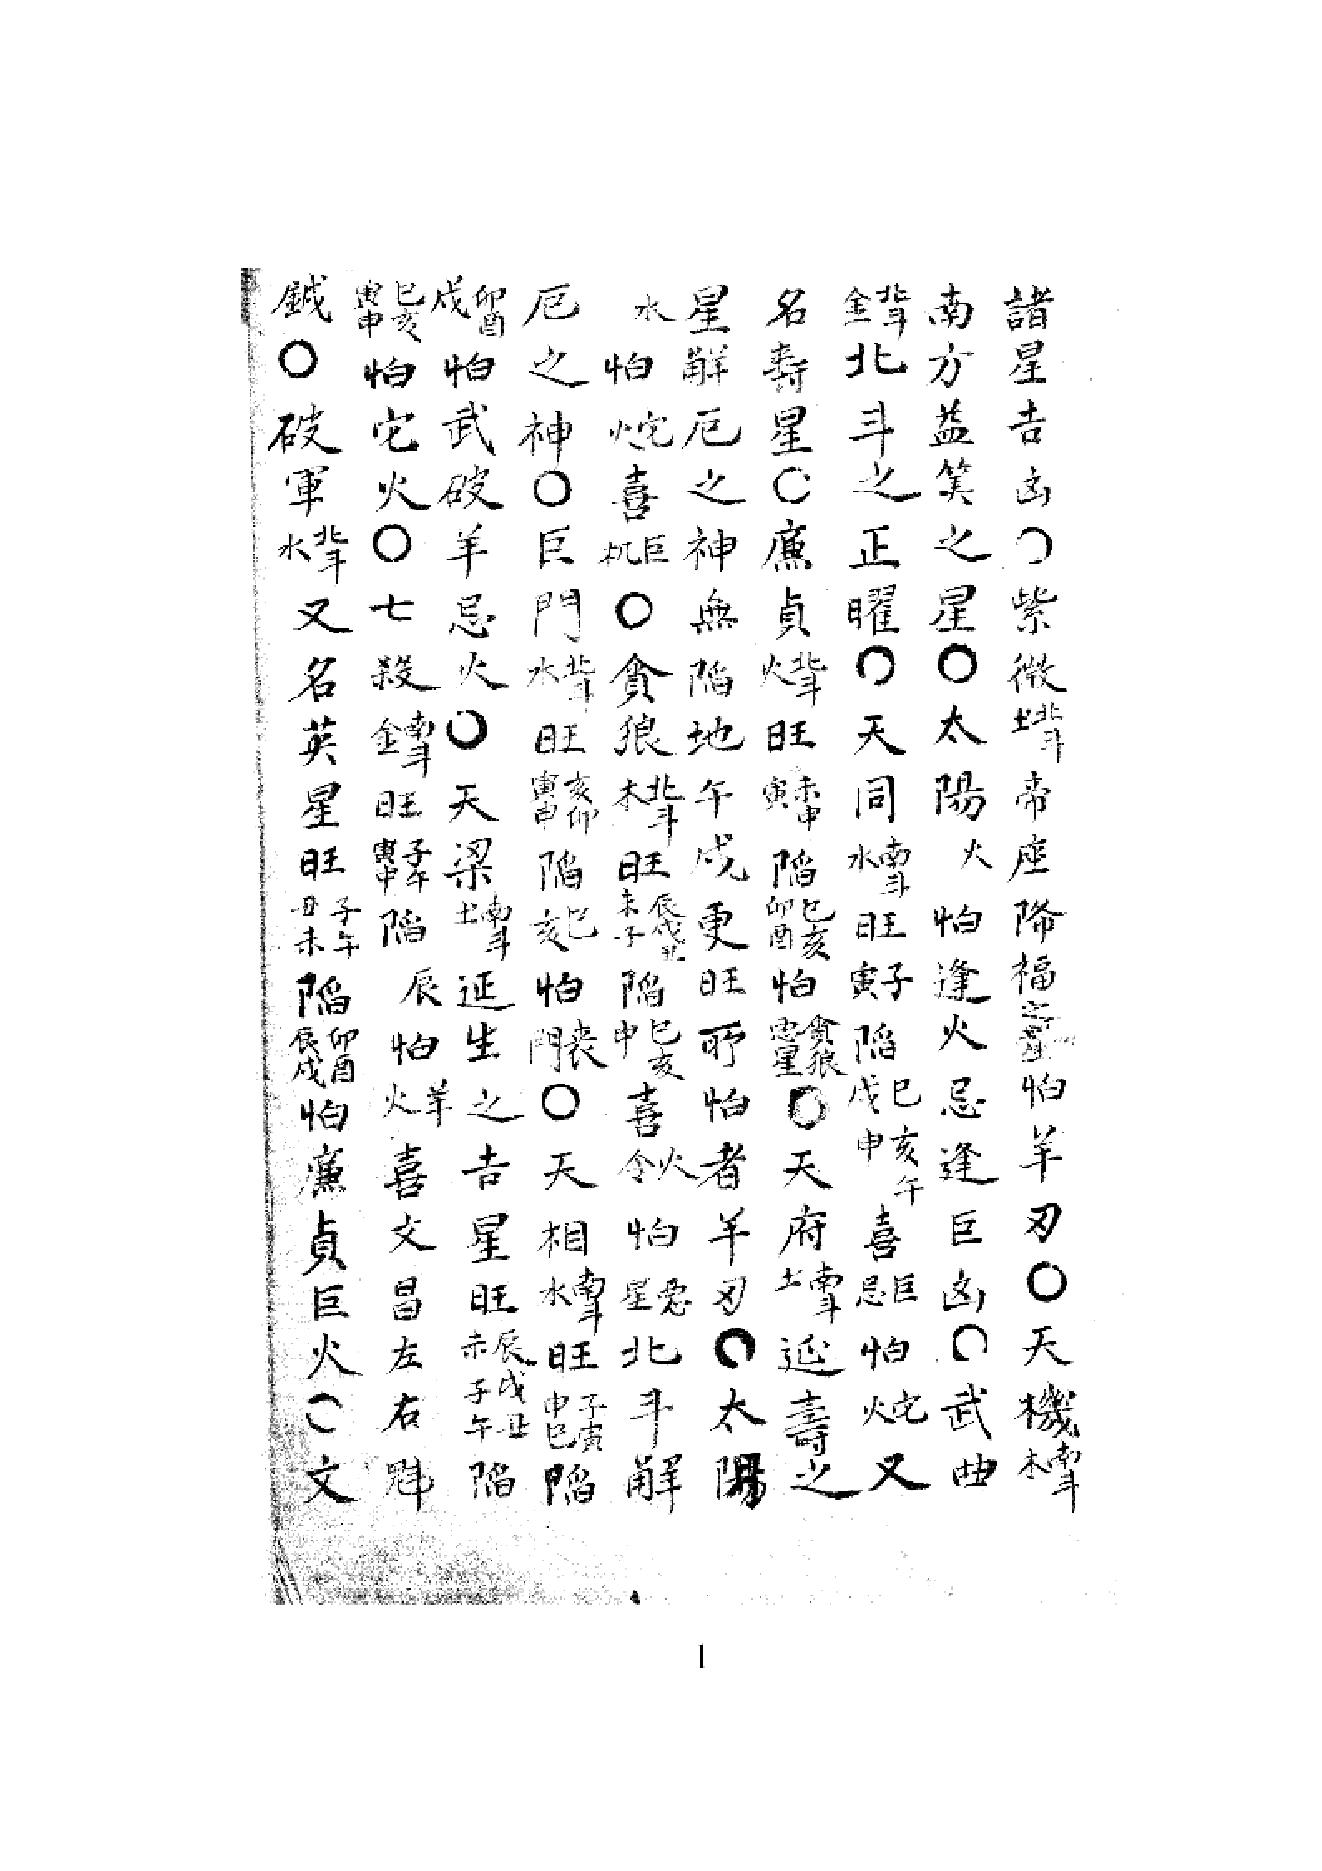 諸星吉凶〇紫微北斗土帝座降福之星怕羊刃〇天機南斗木
南方益算之星〇太陽火怕逢火忌逢巨凶〇武曲
北斗金北斗之正曜〇天同南斗水旺子寅陷巳亥午戌申喜巨忌怕火陀又
名壽星〇廉貞北斗火旺未申寅陷巳亥卯酉怕貪狼惡星〇天府南斗土延壽之
星解厄之神無陷地午戌更旺所怕者羊刃〇太陽
水怕火陀喜巨机〇貪狼北斗木旺辰戌丑未子陷巳亥申喜火令怕惡星北斗解
厄之神〇巨門北斗水旺亥卯寅申陷巳亥怕喪門〇天相南斗水旺子寅申巳陷
卯酉戌怕武破羊忌火〇天梁南斗土延生之吉星旺辰戌丑未子午陷
巳亥寅申怕陀火〇七殺南斗金旺子午寅申陷辰怕羊火喜文昌左右魁
鉞〇破軍北斗水又名英星旺子午丑未陷卯酉辰戌怕廉貞巨火〇文
1